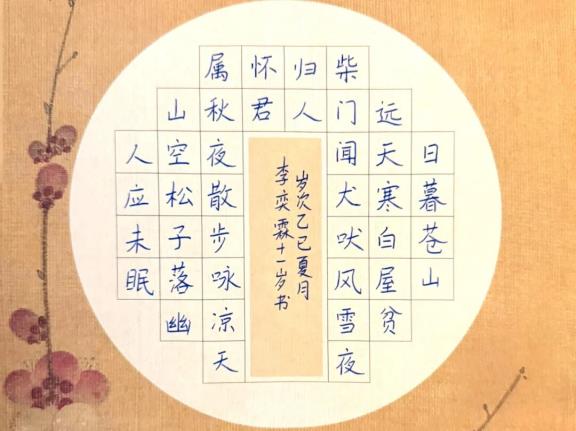 日暮苍山
远天寒白屋贫
柴门闻犬吠风雪夜
归人
怀君
属秋夜散步咏凉天
山空松子落幽
人应未眠
岁次乙巳夏月
李奕霖十一岁书